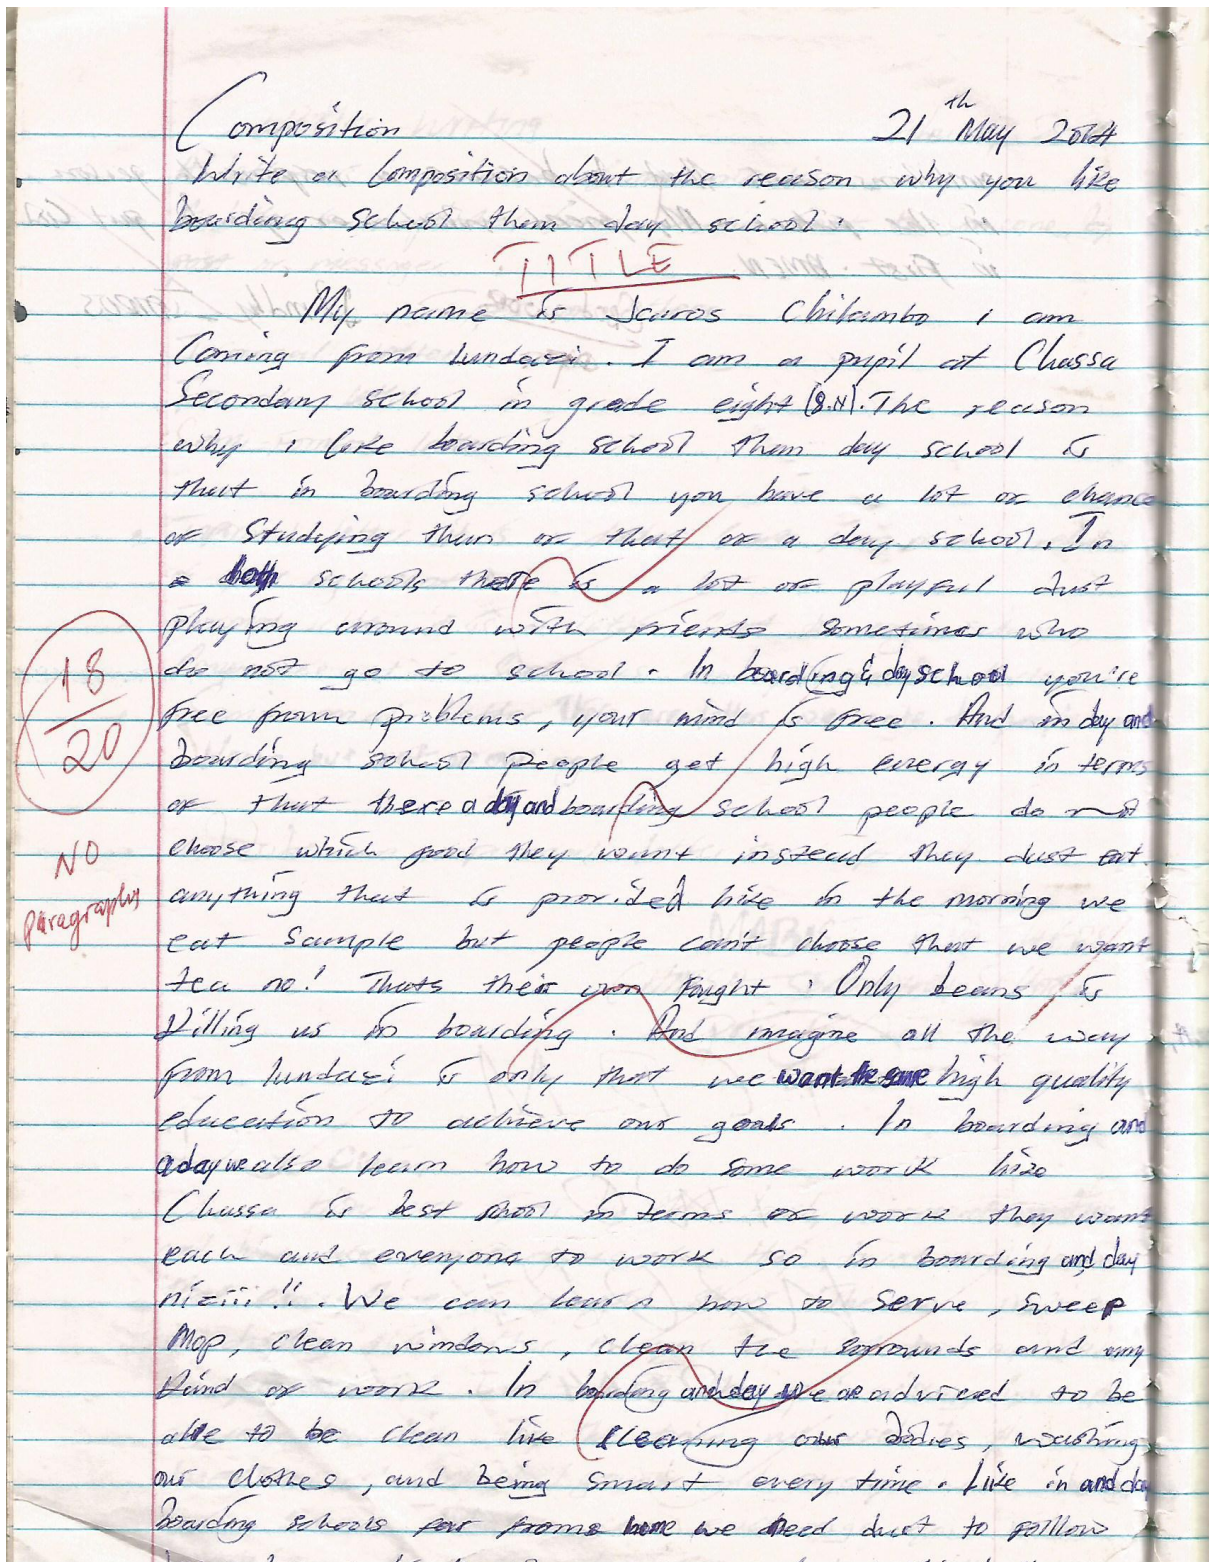 Composition 21th May 2014
Write a Composition about the reason why you like
boarding school then day school.
TITLE
My name is Jairos Chilambo i am
Coming from lundazi. I am a pupil at Chassa
Secondary school in grade eight (8.N). The reason
why i like boarding school than day school is
that in boarding school you have a lot of chance
of studying than of that of a day school. In
both schools there is a lot of playful dust
playing around with friends sometimes who
do not go to school. In boarding & day school you're
free from problems, your mind is free. And in day and
boarding school people get high energy in terms
of that there a day and boarding school people do not
choose which food they want instead they dust eat
anything that is provided like in the morning we
eat Sample but people can't choose that we want
tea no! Thats their own fought. Only beans is
killing us in boarding. And imagine all the way
from lundazi is only that we want the same high quality
education to achieve our goals. In boarding and
a day we also learn how to do some work like
Chassa is best school in terms of work they want
each and everyone to work so in boarding and day
niziii!!. We can learn how to serve, sweep
Mop, clean windows, clean the sorrounds and any
kind of work. In boarding and day we are adviced to be
able to be clean like cleening our bodies, washing
our clothes, and being smart every time. Like in and day
boarding schools far from home we need dust to folllow
18/20
NO
paragraphs